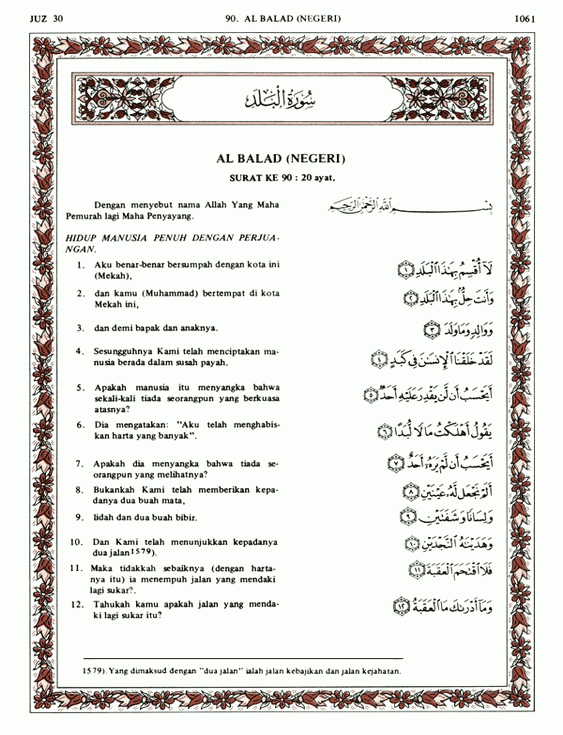 JUZ 30 90. AL BALAD (NEGERI) 1061
سُورَةُ الْبَلَدِ
AL BALAD (NEGERI)
SURAT KE 90 : 20 ayat.
Dengan menyebut nama Allah Yang Maha
Pemurah lagi Maha Penyayang.
بِسْمِ اللَّهِ الرَّحْمَٰنِ الرَّحِيمِ
HIDUP MANUSIA PENUH DENGAN PERJUA-
NGAN.
1. Aku benar-benar bersumpah dengan kota ini
(Mekah),
لَآ أُقْسِمُ بِهَٰذَا ٱلْبَلَدِ ﴿١﴾
2. dan kamu (Muhammad) bertempat di kota
Mekah ini,
وَأَنتَ حِلٌّۢ بِهَٰذَا ٱلْبَلَدِ ﴿٢﴾
3. dan demi bapak dan anaknya.
وَوَالِدٍ وَمَا وَلَدَ ﴿٣﴾
4. Sesungguhnya Kami telah menciptakan ma-
nusia berada dalam susah payah.
لَقَدْ خَلَقْنَا ٱلْإِنسَٰنَ فِى كَبَدٍ ﴿٤﴾
5. Apakah manusia itu menyangka bahwa
sekali-kali tiada seorangpun yang berkuasa
atasnya?
أَيَحْسَبُ أَن لَّن يَقْدِرَ عَلَيْهِ أَحَدٌ ﴿٥﴾
6. Dia mengatakan: "Aku telah menghabis-
kan harta yang banyak".
يَقُولُ أَهْلَكْتُ مَالًا لُّبَدًا ﴿٦﴾
7. Apakah dia menyangka bahwa tiada se-
orangpun yang melihatnya?
أَيَحْسَبُ أَن لَّمْ يَرَهُۥٓ أَحَدٌ ﴿٧﴾
8. Bukankah Kami telah memberikan kepa-
danya dua buah mata,
أَلَمْ نَجْعَل لَّهُۥ عَيْنَيْنِ ﴿٨﴾
9. lidah dan dua buah bibir.
وَلِسَانًا وَشَفَتَيْنِ ﴿٩﴾
10. Dan Kami telah menunjukkan kepadanya
dua jalan1579).
وَهَدَيْنَٰهُ ٱلنَّجْدَيْنِ ﴿١٠﴾
11. Maka tidakkah sebaiknya (dengan harta-
nya itu) ia menempuh jalan yang mendaki
lagi sukar?.
فَلَا ٱقْتَحَمَ ٱلْعَقَبَةَ ﴿١١﴾
12. Tahukah kamu apakah jalan yang menda-
ki lagi sukar itu?
وَمَآ أَدْرَىٰكَ مَا ٱلْعَقَبَةُ ﴿١٢﴾
1579). Yang dimaksud dengan "dua jalan" ialah jalan kebajikan dan jalan kejahatan.